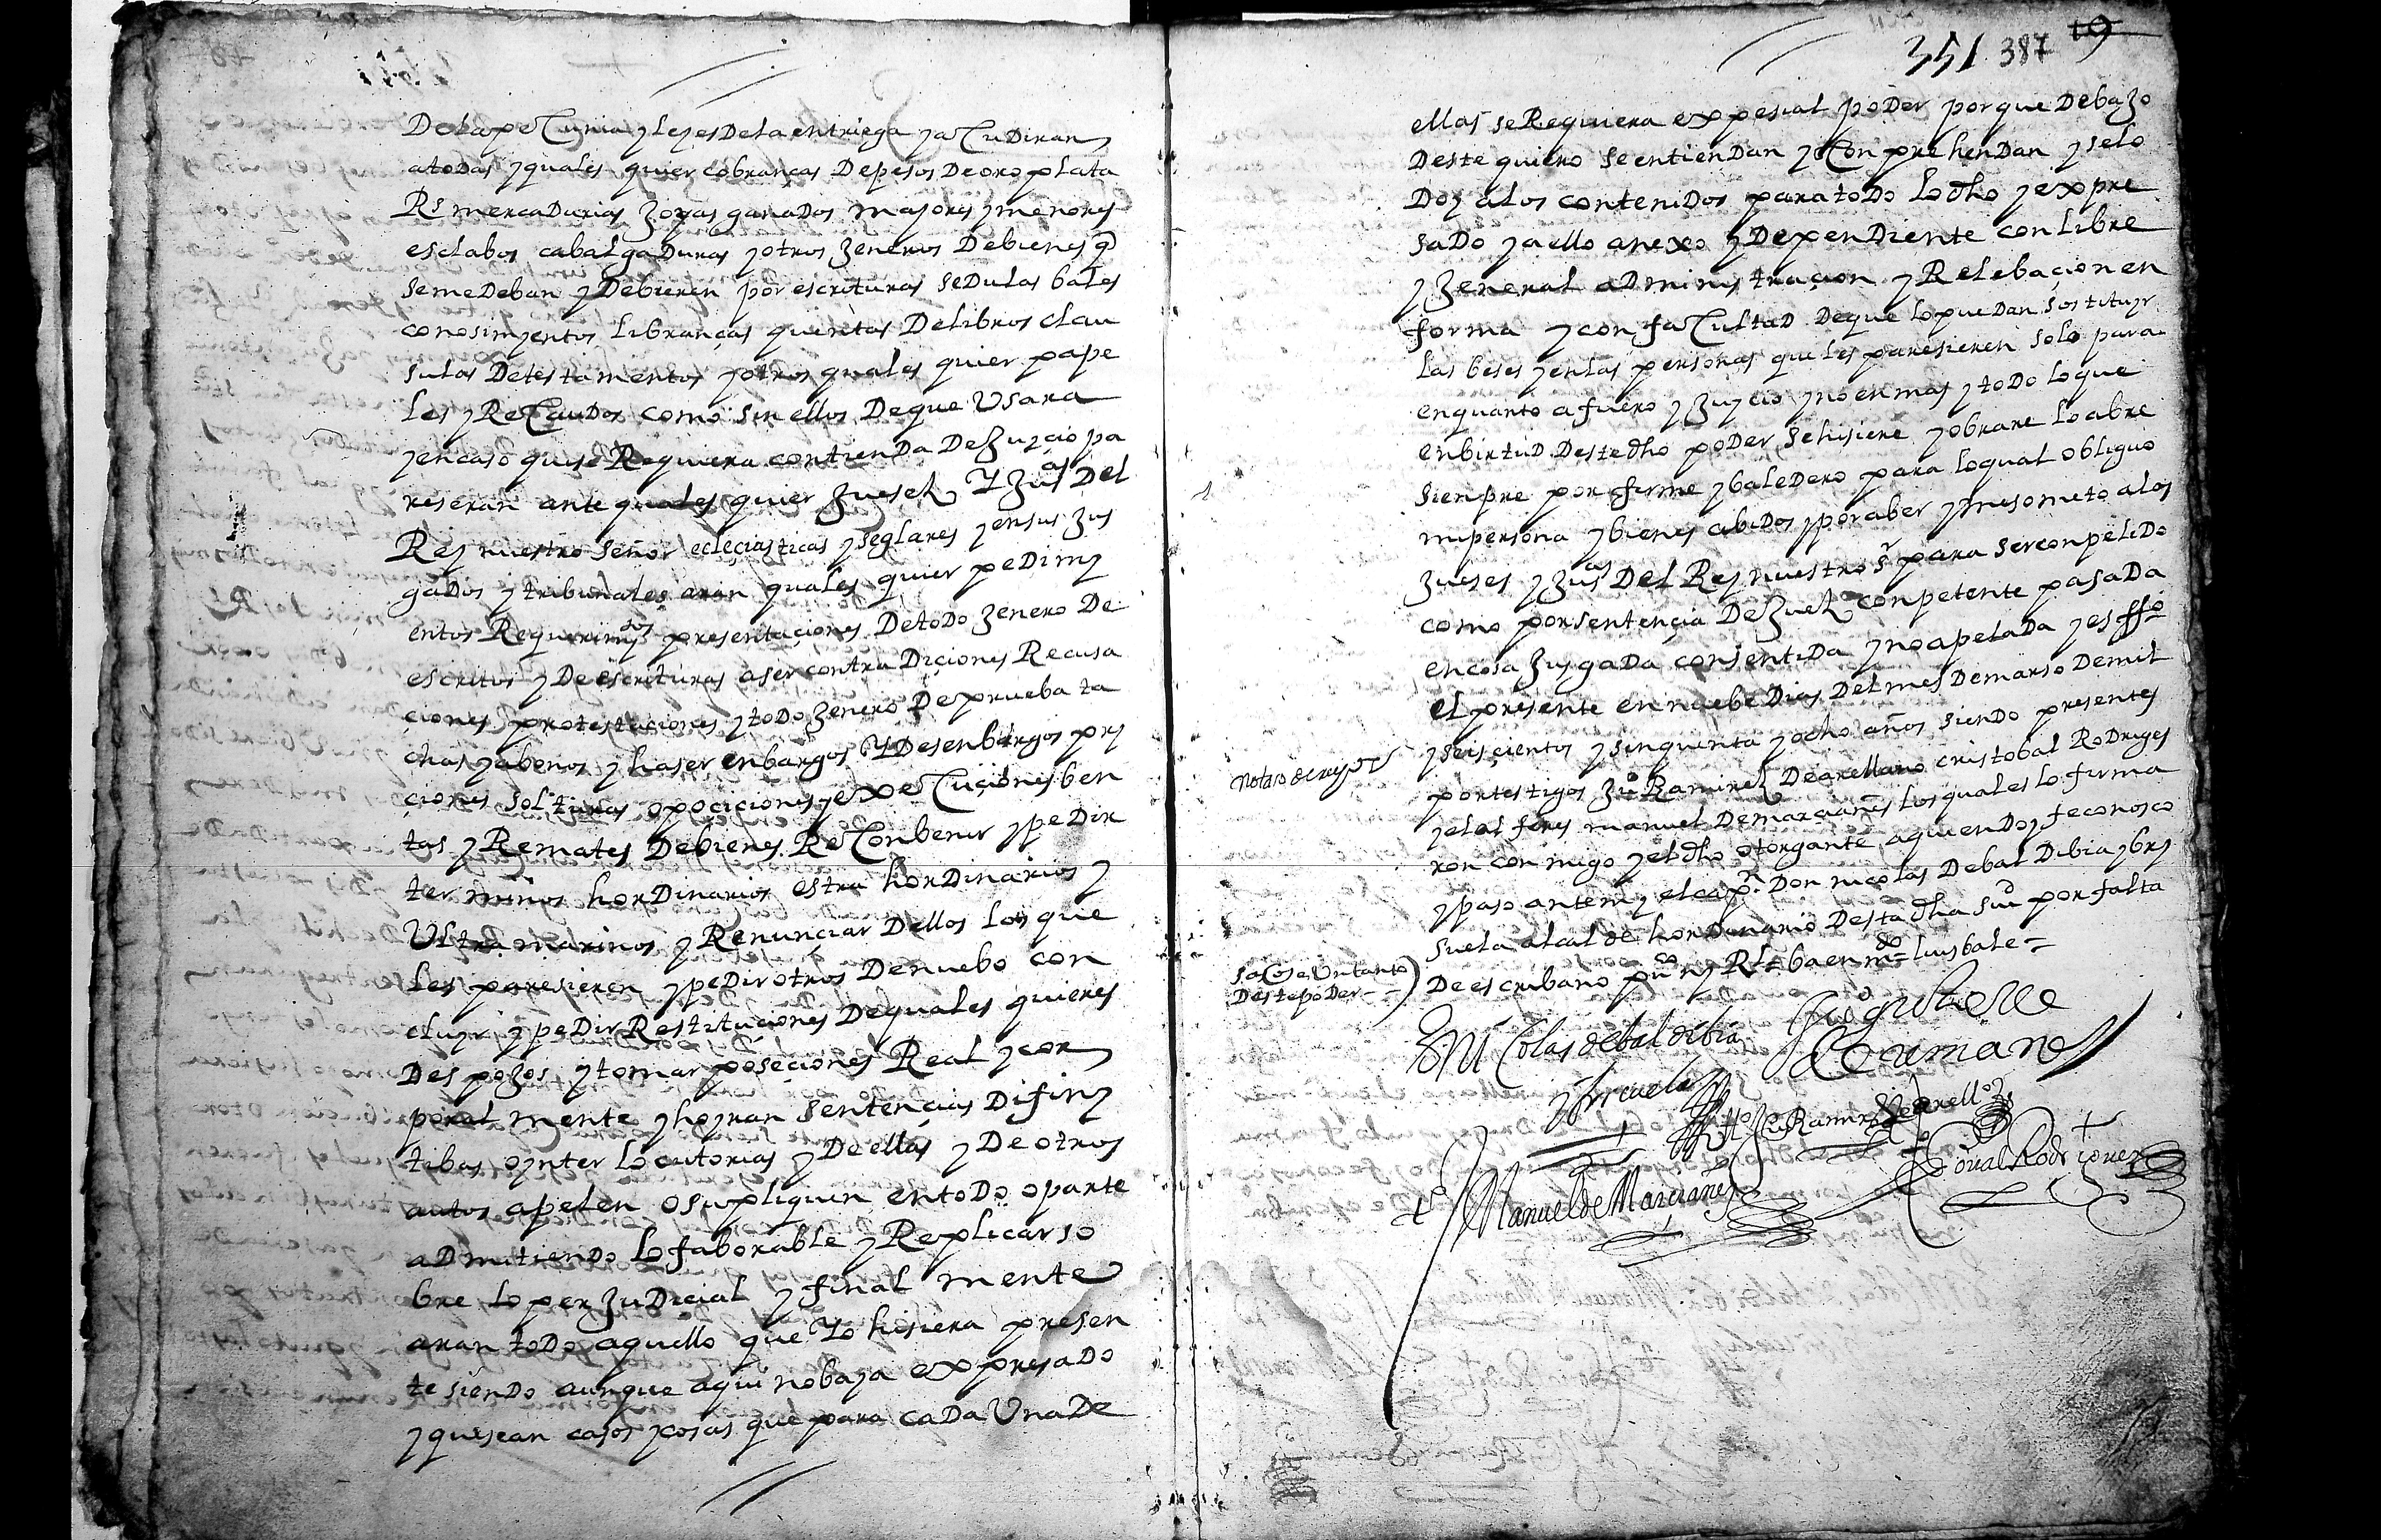 De la peCunia y leyes De la entriega y aCuDiran
a toDas y quales quier cobranças De pesos De oro plata
Rs mercaDurias Joyas ganaDos majores y menores
esclabos cabalgaDuras y otros Jeneros De bienes q
se me Deban y Debieren por escrituras seDulas bales
conosimyentos libranças quentas De libros clau
sulas De testamentos y otros quales quier pape
les y ReCauDos como sin ellos De que Usara
y en caso que se Requiera contienDa De Juycio pa
reseran ante quales quier Jueses Y Jusas Del
Rey nuestro señor ecleçiasticas y seglares y en sus Jus
gaDos y tribunales aran quales quier peDimy
entos Requerimytos presentaçiones De toDo Jenero De
escritos y De escrituras aser contraDiçiones Recusa
çiones protestaçiones y toDo Jenero De prueba ta
chas y abonos y haser enbargos Y Desenbargos pry
çiones solturas opociciones y exeCuçiones ben
tas y Remates De bienes ReConbenir y peDir
terminos horDinarios estra horDinarios y
Ultra marinos y Renunçiar Dellos los que
les paresieren y peDir otros De nuebo con
cluyr y peDir Restituçiones De quales quieres
Despojos y tomar poseçiones Real y cor
poral mente y hoyran sentençias Difiny
tibas o ynter locutorias y De ellas y De otros
autos apelen o supliquen en toDo o parte
aDmitienDo lo faborable y Replicar so
bre lo perJuDicial y final mente
aran toDo aquello que Yo hisiera presen
te sienDo aunque aqui no baya expresaDo
y que sean casos y cosas que para caDa Una De
351 387 19
ellas se Requiera expesial poDer porque Debajo
Deste quiero se entienDan y ConprehenDan y se lo
Doy a los conteniDos para toDo lo dho y expre
saDo y a ello anexo y DepenDiente con libre
y Jeneral aDministraçion y Relebaçion en
forma y con faCultaD De que lo pueDan sostituyr
las beses y en las personas que les paresieren solo para
en quanto a fuero y Juycio y no en mas y toDo lo que
en birtuD Deste dho poDer se hisiere y obrare lo abre
sienpre por firme y baleDero para lo qual obliguo
mi persona y bienes abiDos y por aber y me someto a los
Jueses y Jusas Del Rey nuestro sr para ser conpeliDo
como por sentençia De Juez conpetente pasaDa
en cosa JusgaDa consentiDa y no apelaDa y es ffo
el presente en nuebe Dias Del mes De marso De mil
y seisçientos y sinquenta y ocho años sienDo presentes
por testigos Ju Ramirez De arellano cristobal RoDriges
y el alferes manuel De marçianes los quales lo firma
ron conmigo y el dho otorgante a quien Doy fe conosco
y paso ante my el capn Don nicolas De balDibia y bry
suela alcalde horDinario Desta dha siuD por falta
De escribano puco ny Rl = ba en mDo = luis bale =
saCose Un tanto
Deste poDer
Dn NiColas de baldibia
y brisuela
Manuel de Marçianes
Ramirez de arello
Xpoual Rodriguez